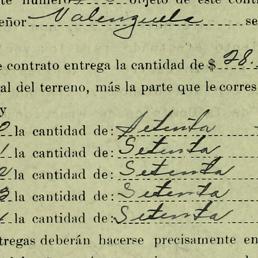 objeto de este
señor Valenzuela se
contrato entrega la cantidad de $ 28
al del terreno, más la parte que le corres
y
la cantidad de: Setenta
la cantidad de: Setenta
la cantidad de: Setenta
la cantidad de: Setenta
la cantidad de: Setenta
tregas deberán hacerse precisamente en